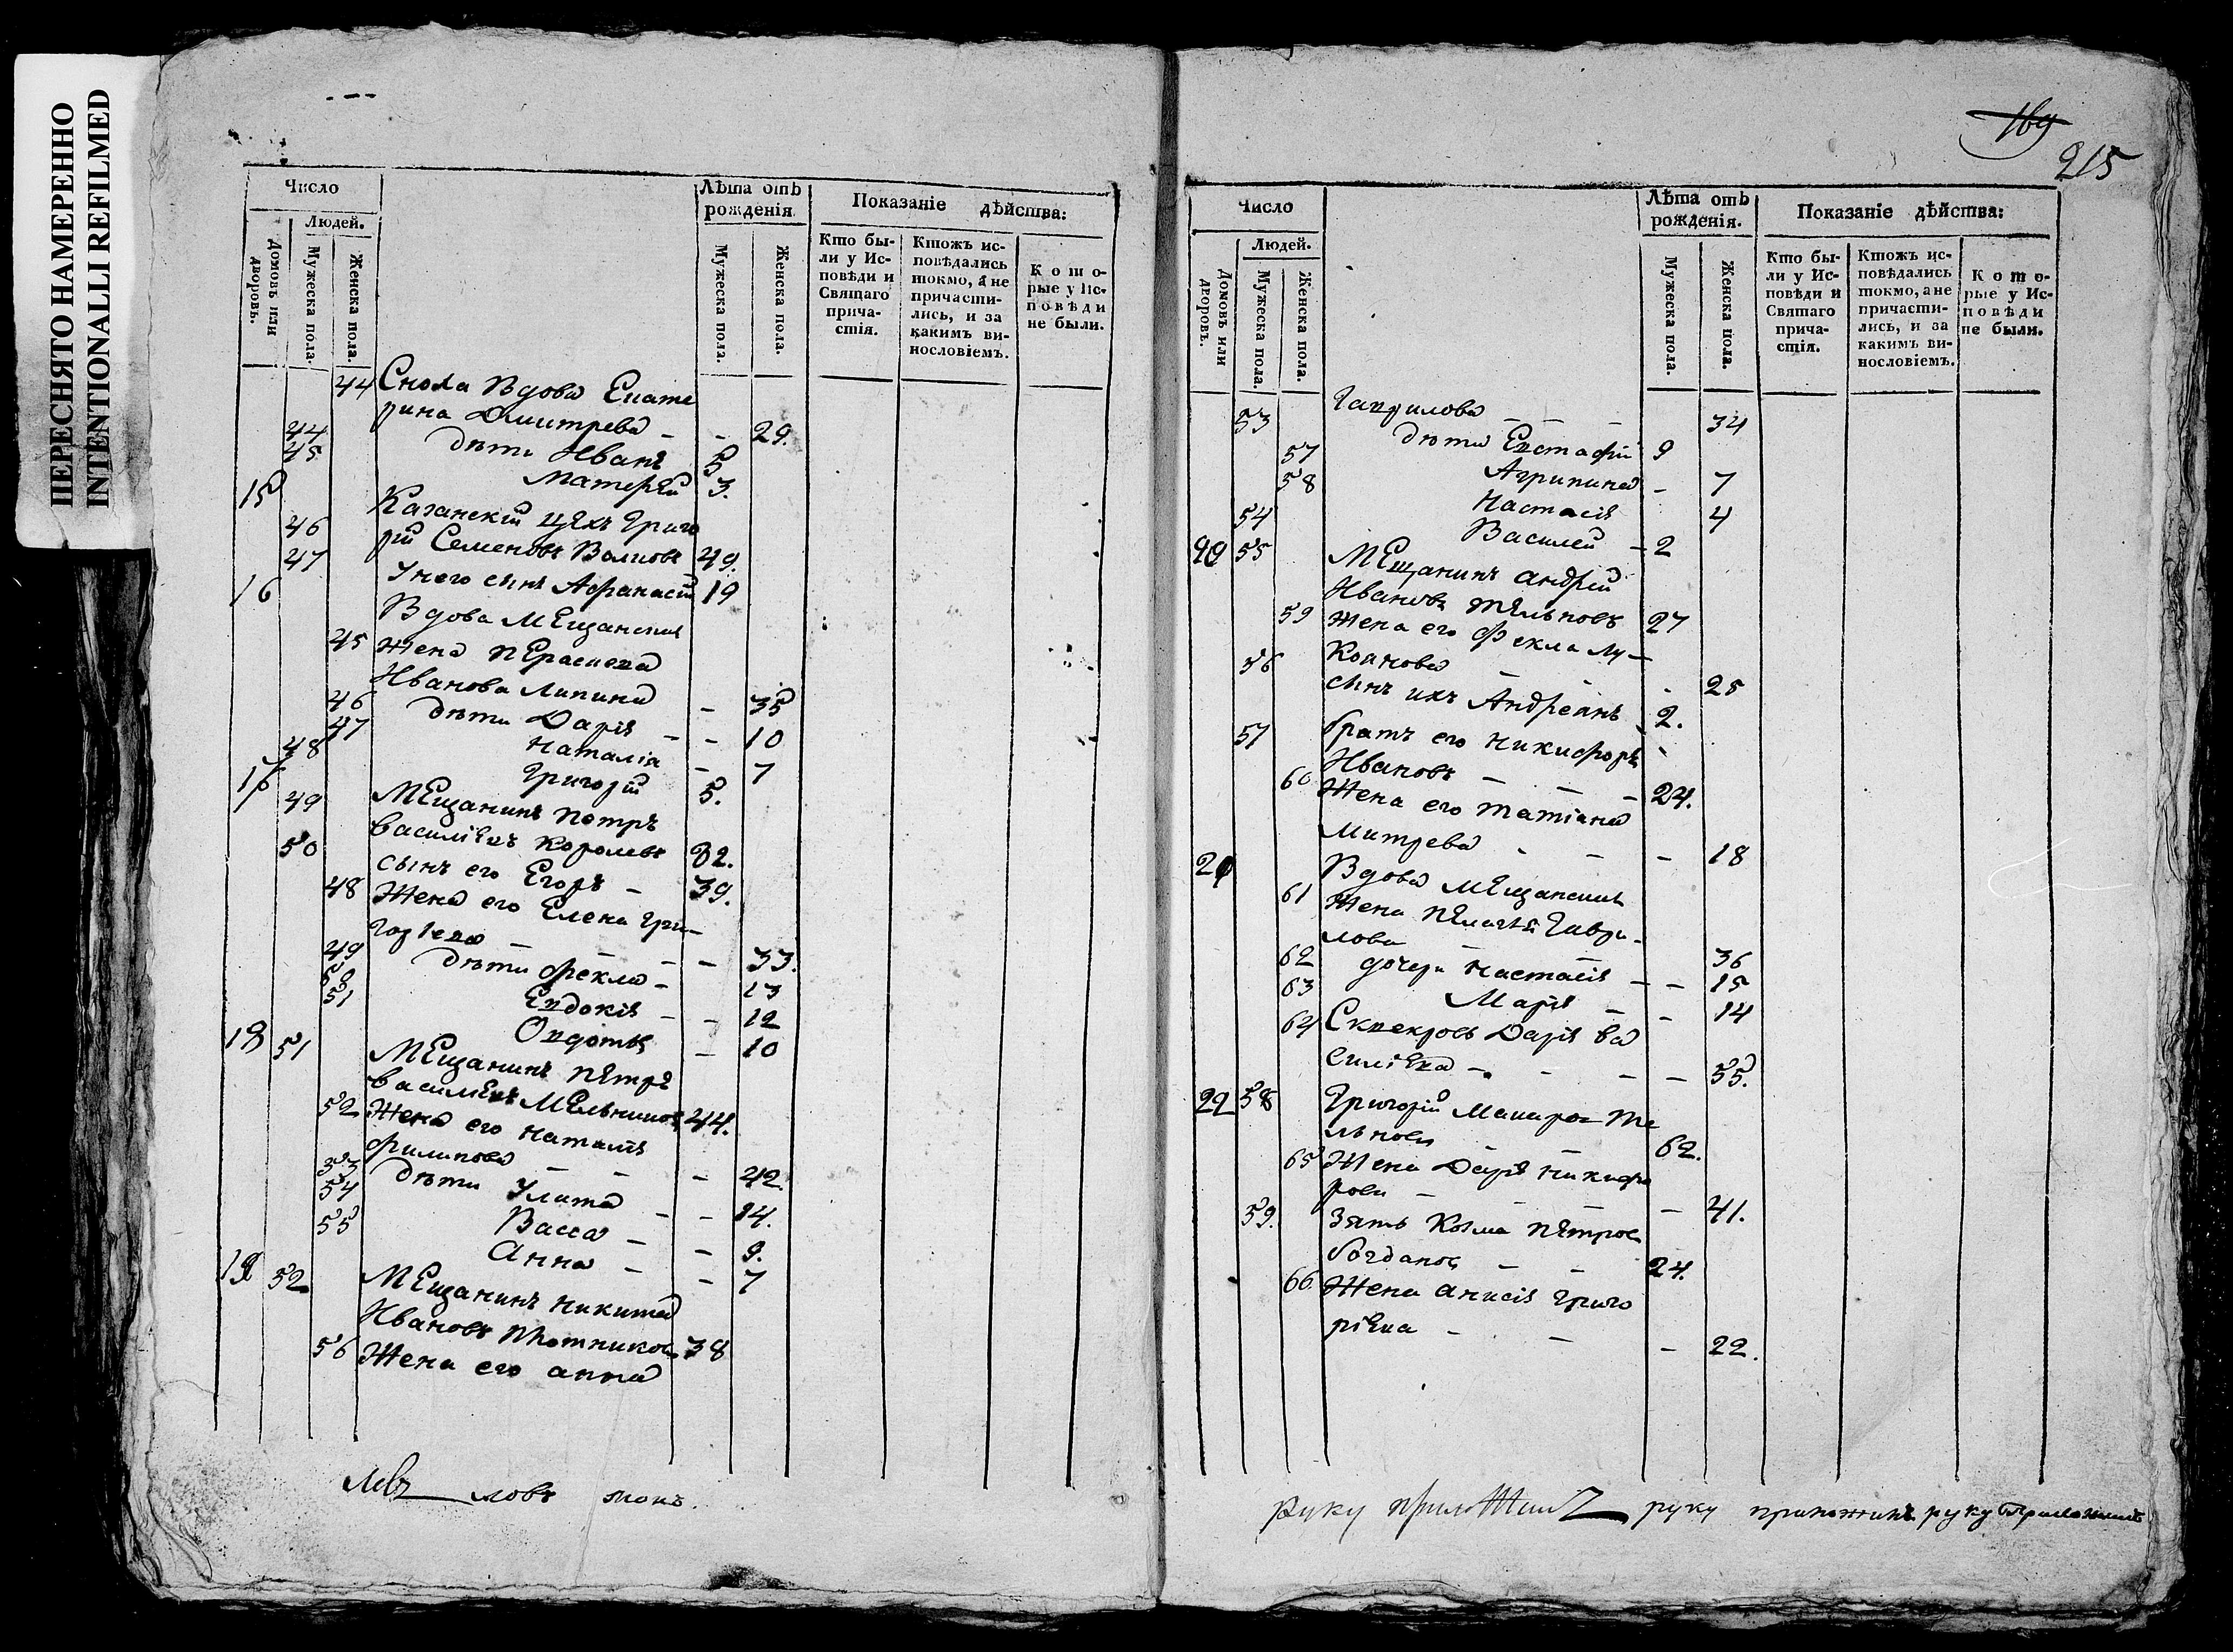 ПЕРЕСНЯТО НАМЕРЕННО
INTENTIONALLI REFILMED
Число
Людей.
Домовъ или дворовъ.
Мужеска пола.
Женска пола.
Лѣта отъ рожденія
Мужеска пола.
Женска пола.
Показаніе дѣйства:
Кто были у Исповѣди и Святаго причастія.
Ктожъ исповѣдались токмо, а не причастились, и за какимъ винословіемъ.
Которые у Исповѣди не были.
44 Сноха Вдова Екате
рина Дмитрева - - 29.
44 дѣти Иванъ 5
45 Матфѣй 3.
15 Казанскій цехъ Григо
46 рій Семеновъ Волковъ 49.
47 У него сынъ Афанасій 19
16 Вдова Мещанская
45 Жена Параскева
Иванова Лапина - 35
46 дѣти Дарія - - 10
47 Наталіа - 7
48 Григорій 5.
17 49 Мещанинъ Петръ
Василіевъ Королевъ 82.
50 сынъ его Егоръ - 39.
48 Жена его Елена Гри-
горіева - - - 33.
49 дѣти Фекла - 13
50 Евдокія - - 12
51 Овдотья - 10
18 51 Мещанинъ Петръ
Василіевъ Мельников 44.
52 Жена его Наталія
Филипова - - - 42.
53 дѣти Улита - - 14.
54 Васса - - 9.
55 Анна - - 7
19 52 Мещанинъ Никита
Ивановъ Плотников 38
56 Жена его анна
Левъ ловъ
169
215
Число
Людей.
Домовъ или дворовъ.
Мужеска пола.
Женска пола.
Лѣта отъ рожденія.
Мужеска пола.
Женска пола.
Показаніе дѣйства:
Кто были у Исповѣди и Святаго причастія.
Ктожъ исповѣдались токмо, а не причастились, и за какимъ винословіемъ.
Которые у Исповѣди не были.
Гаврилова - - - 34
53 дѣти Евстафій 9
57 Агрипина - 7
58 Настасія 4
54 Василей - 2
20 55 Мещанинъ андрей
Ивановъ Тельновъ 27
59 Жена его Фекла Лу-
коанова - - - 25
56 сынъ ихъ Андреанъ 2.
57 братъ его Никифоръ
Ивановъ - - - 24.
60 Жена его Татіана
Митрева - - - 18
21 Вдова Мещанская
61 Жена Пелагея Гаври-
лова - - 36
62 дочери Настасія - - 15
63 Марія - - 14
64 Свекровь Дарія Ва
силіева - - - - 55.
22 58 Григорій Макаров Те
льнов 62.
65 Жена Дарія Никифо
рова - - - 41.
59. Зять Козма Петров
Богданов - - 24.
66. Жена анисія Григо
ріева - - - 22.
руку приложилъ руку приложилъ руку Приложилъ